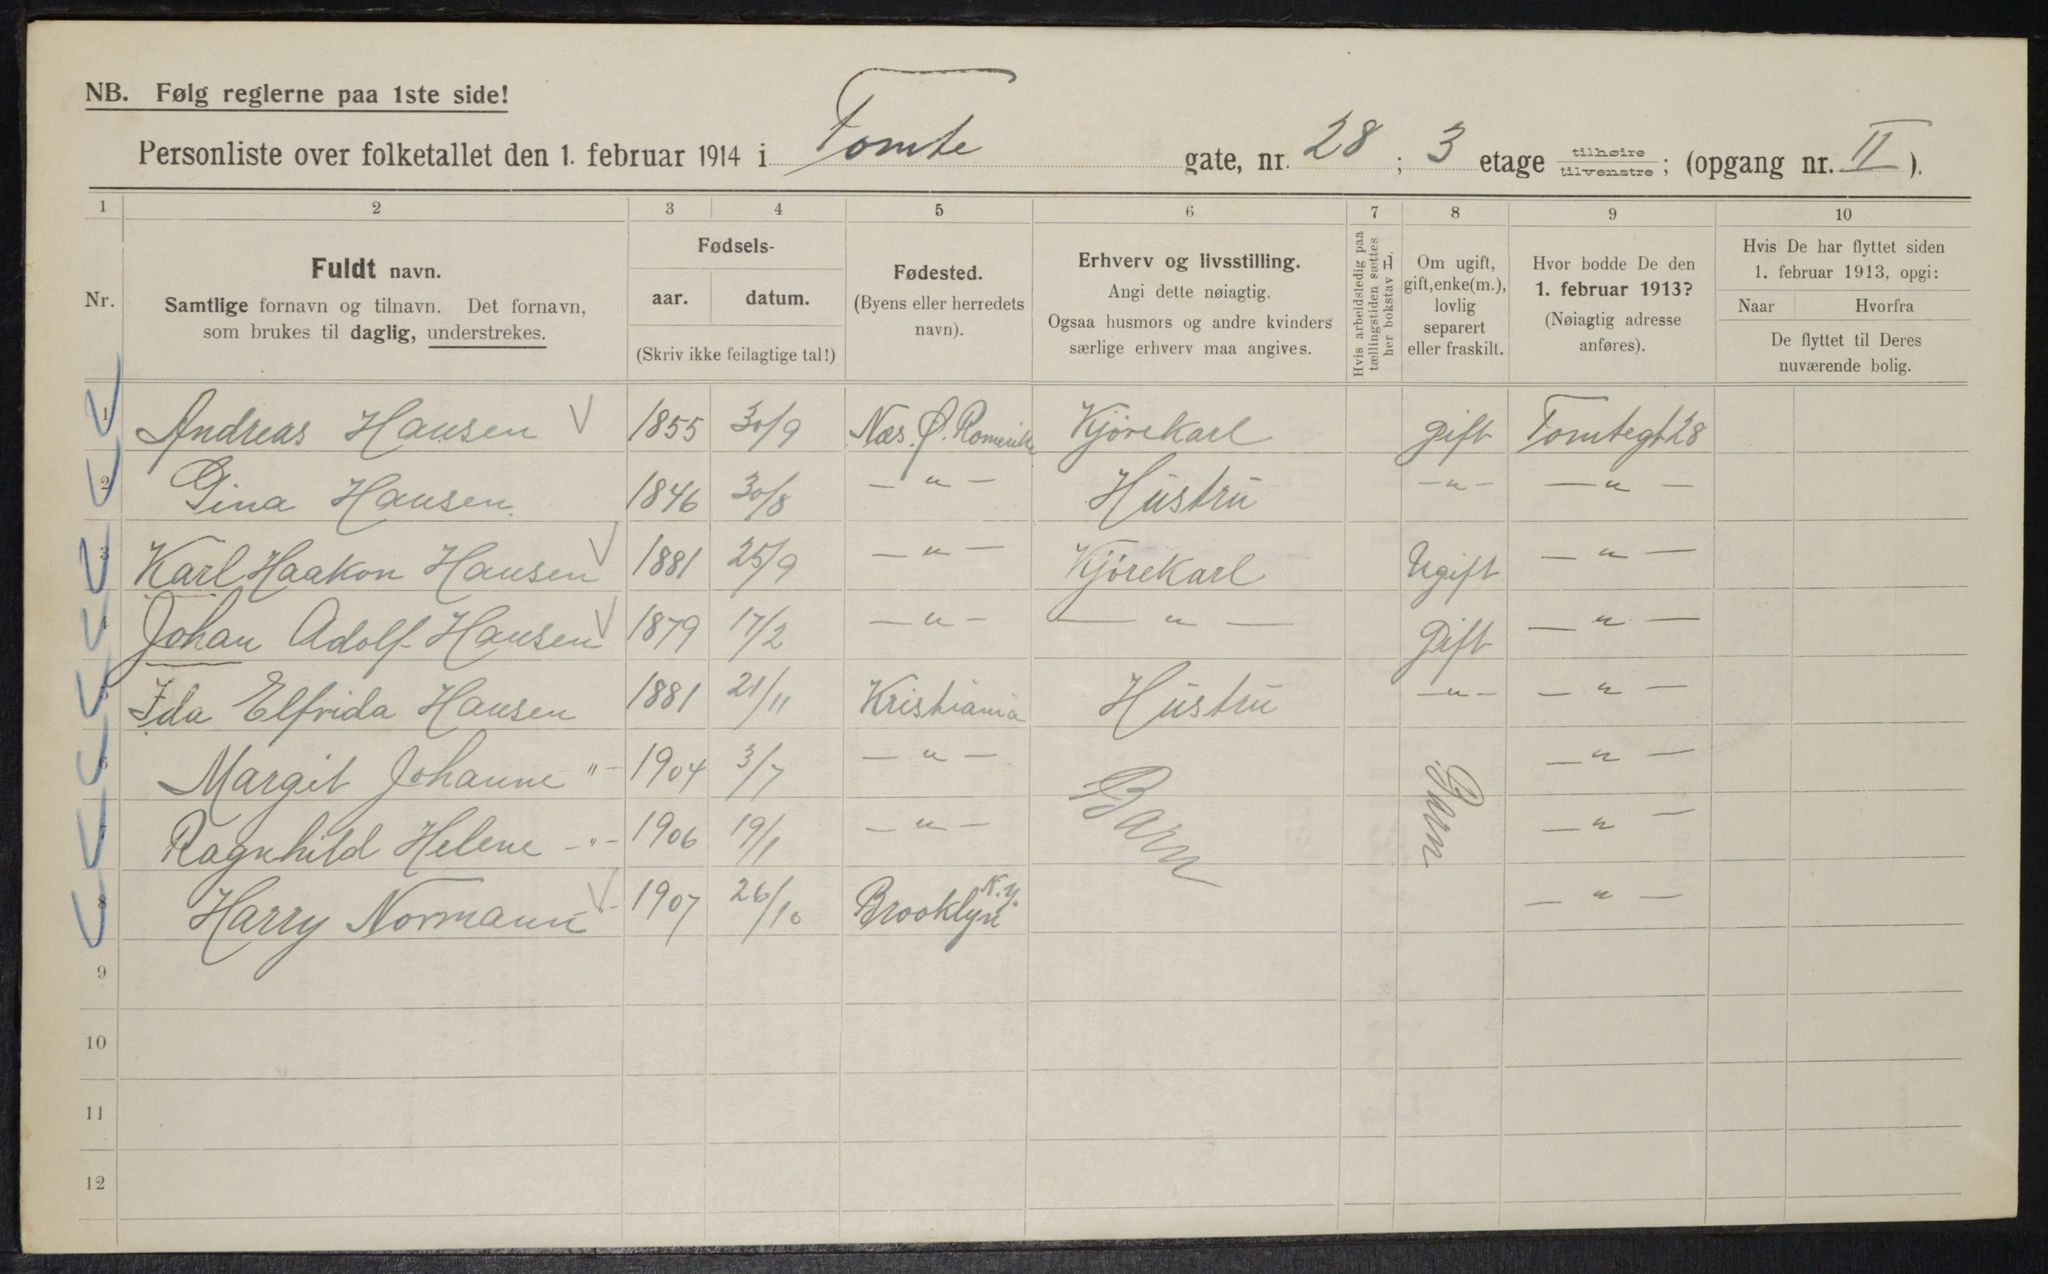 NB. Følg reglerne paa 1ste side!
Personliste over folketallet den 1. februar 1914 i Tomte gate, nr. 28 ; 3 etage tilhøire tilvenstre ; (opgang nr. II ).
1 2 3 4 5 6 7 8 9 10
Nr.
Fuldt navn.
Samtlige fornavn og tilnavn. Det fornavn,
som brukes til daglig, understrekes.
Fødsels-
aar. datum.
(Skriv ikke feilagtige tal!)
Fødested.
(Byens eller herredets
navn).
Erhverv og livsstilling.
Angi dette nøiagtig.
Ogsaa husmors og andre kvinders
særlige erhverv maa angives.
Hvis arbeidsledig paa
tællingstiden sættes
her bokstav L.
Om ugift,
gift, enke(m.),
lovlig
separert
eller fraskilt.
Hvor bodde De den
1. februar 1913?
(Nøiagtig adresse
anføres).
Hvis De har flyttet siden
1. februar 1913, opgi:
Naar Hvorfra
De flyttet til Deres
nuværende bolig.
1 Andreas Hansen 1855 30/9 Næs. Ø. Romerike Kjørekarl gift Tomtegt 28
2 Gina Hansen. 1846 30/8 — " — Hustru — " — — " —
3 Karl Haakon Hansen 1881 25/9 — " — Kjørekarl Ugift — " —
4 Johan Adolf Hansen 1879 17/2 — " — — " — Gift — " —
5 Ida Elfrida Hansen 1881 21/11 Kristiania Hustru — " — — " —
6 Margit Johanne " — 1904 3/7 — " — Barn Barn — " —
7 Ragnhild Helene — " — 1906 19/1 — " — — " —
8 Harry Normann " — 1907 26/10 Brooklyn N.Y. — " —
9
10
11
12